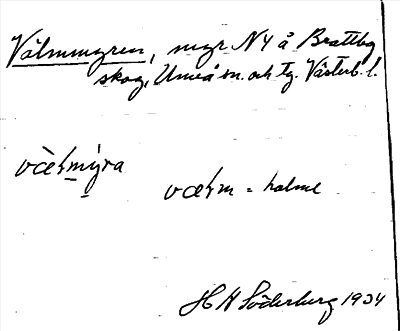 Välmmyren, myr NV å Brattby
skog, Umeå sn. och tg. Västerb. l.
væłmýra
væłm = halme
H H Söderberg 1934